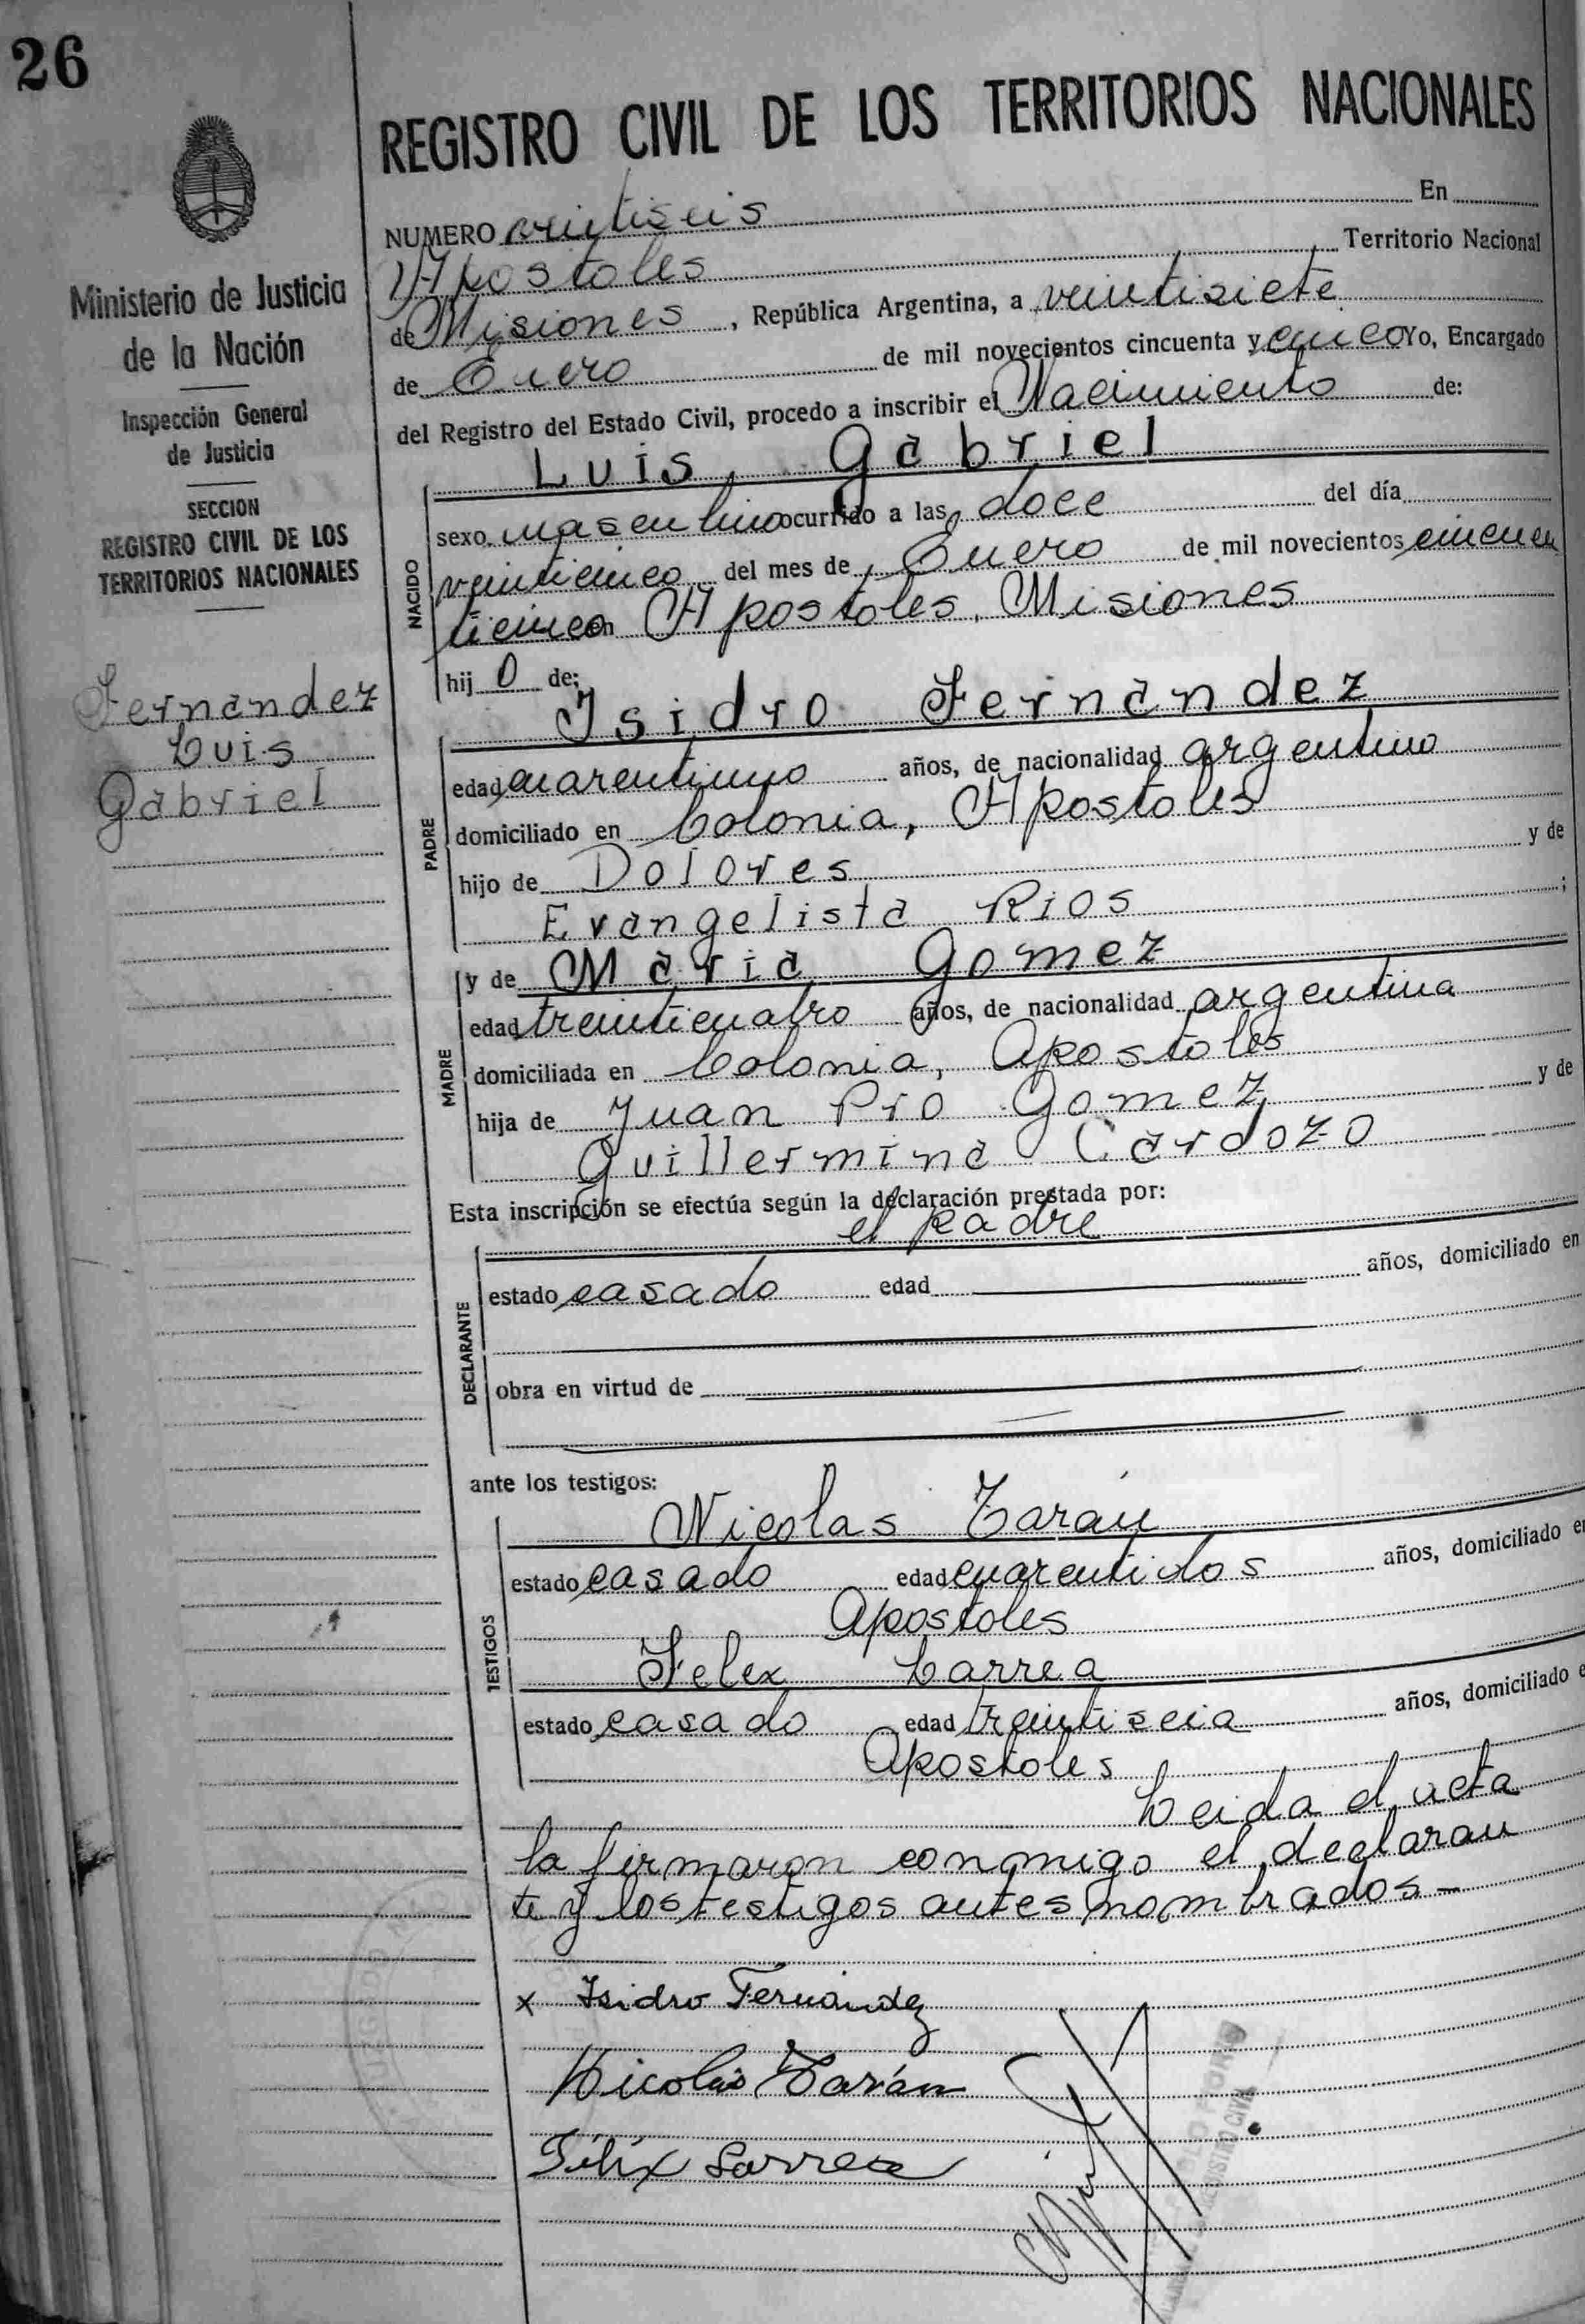 26
REGISTRO CIVIL DE LOS TERRITORIOS NACIONALES
Ministerio de Justicia
de la Nación
Inspección General
de Justicia
SECCION
REGISTRO CIVIL DE LOS
TERRITORIOS NACIONALES
Fernandez
Luis
Gabriel
NUMERO veintiseis En
Apostoles Territorio Nacional
de Misiones, República Argentina, a veintisiete
de Enero de mil novecientos cincuenta y cinco Yo, Encargado
del Registro del Estado Civil, procedo a inscribir el Nacimiento de:
Luis Gabriel
NACIDO
sexo masculino ocurrido a las doce del día
veinticinco del mes de Enero de mil novecientos cincuen
ticinco en Apostoles, Misiones
hij o de:
Isidro Fernandez
PADRE
edad cuarentiuno años, de nacionalidad argentino
domiciliado en Colonia, Apostoles
hijo de Dolores y de
Evangelista Rios ;
MADRE
y de Maria Gomez
edad treinticuatro años, de nacionalidad argentina
domiciliada en Colonia, Apostoles
hija de Juan Pio Gomez y de
Guillermina Cardozo
Esta inscripción se efectúa según la declaración prestada por:
el padre
DECLARANTE
estado casado edad años, domiciliado en
obra en virtud de
ante los testigos:
Nicolas Tarán
TESTIGOS
estado casado edad cuarentidos años, domiciliado en
Apostoles
Felex Larrea
estado casado edad treintiseis años, domiciliado e
Apostoles
Leida el acta
la firmaron conmigo el declaran
te y los testigos antes nombrados-
x Isidro Fernandez
Nicolás Tarán
Félix Larrea
REGISTRO CIVIL